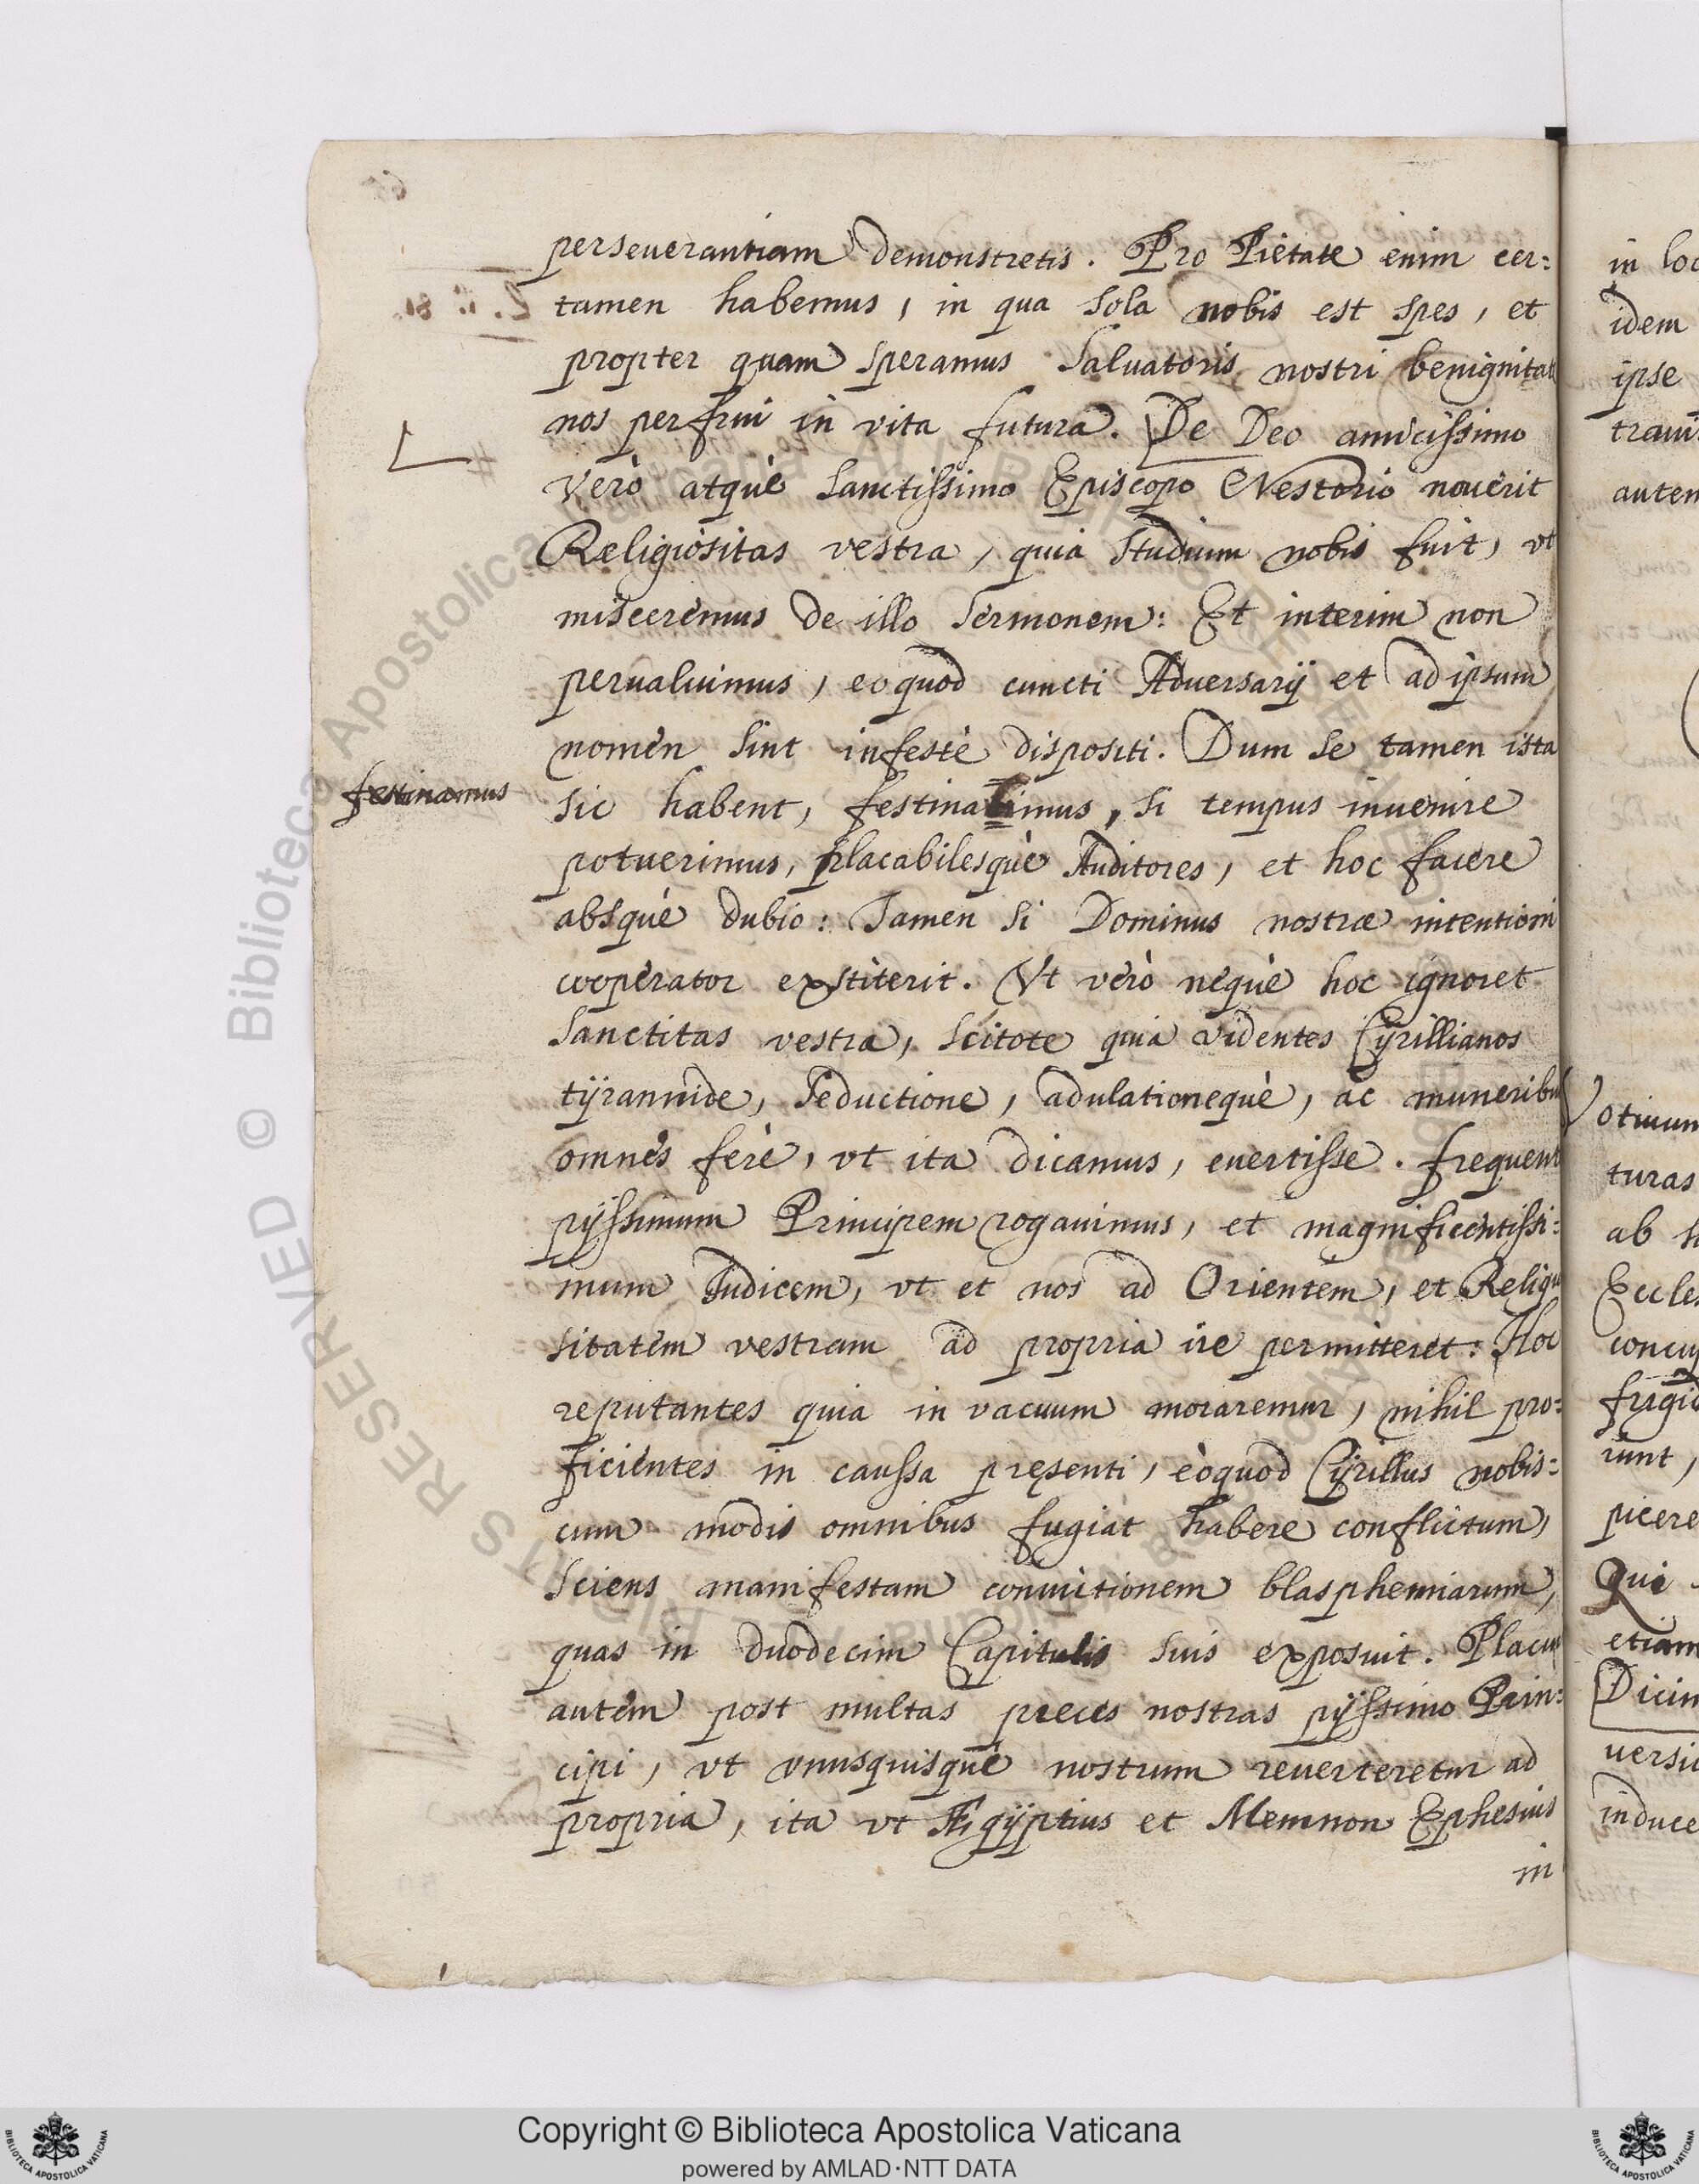 perseuerantiam demonstretis. Pro Pietate enim cer:
tamen habemus, in qua sola nobis est spes, et
propter quam speramus Saluatoris nostri benignitat
nos perfrui in vita futura. De Deo amicissimo
Verò atquè sanctissimo Episcopo Nestorio nouerit
Religiositas vestra, quia studium nobis fuit, vt
misceremus de illo sermonem: Et interim non
perualuimus, eo quod cuncti Aduersarij et ad ipsum
nomen sint infestè dispositi. Dum se tamen ista
festinamus
sic habent, festinabimus, si tempus inuenire
potuerimus, placabilesquè Auditores, et hoc facere
absquè dubio: Tamen si Dominus nostræ intentioni
cooperator exstiterit. Vt verò nequè hoc ignoret
Sanctitas vestra, scitote quia videntes Cÿrillianos
tÿrannide, seductione, adulationequè, ac muneribu
omnes ferè, vt ita dicamus, euertisse. frequent
pijssimum Principem rogauimus, et magnificentissi:
mum Iudicem, vt et nos ad Orientem, et Religi
sitatem vestram ad propria ire permitteret: Hoc
reputantes quia in vacuum moraremur, nihil pro:
ficientes in caussa pręsenti, eòquod Cÿrillus nobis:
cum modis omnibus fugiat habere conflictum,
Sciens manifestam conuictionem blasphemiarum,
quas in duodecim Capitulis suis exposuit. Placu
autem post multas preces nostras pijssimo Prin:
cipi, vt vnusquisquè nostrum reuerteretur ad
propria, ita vt Ægÿptius et Memnon Ephesius
in
in loc
idem
ipse
autem
otium
turas
ab
Eccles
frigid
runt,
picere
Qui
etiam
Dicim
uersi
induce
Copyright © Biblioteca Apostolica Vaticana
powered by AMLAD·NTT DATA